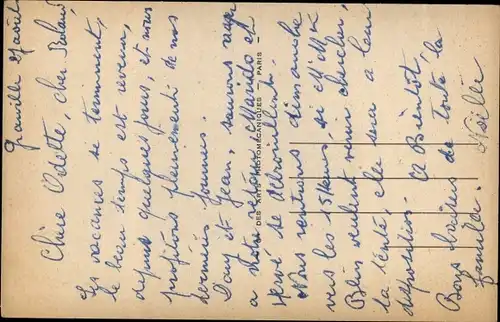 Granville 27 août
Chère Odette, cher Roland,
Les vacances se terminent,
le beau temps est revenu
depuis quelques jours, et nous
profitons pleinement de nos
dernières journées.
Dany et Jean, saurons
a votre Maïdo et
Hervé se
Nous rentrions dimanche
vers les 15 heures, si M. Mme
Blin veulent venir chercher
la tente, elle sera a leur
disposition. A Bientôt.
Bons baisers de toute la
famille.
DES ARTS PHOTOMÉCANIQUES — PARIS